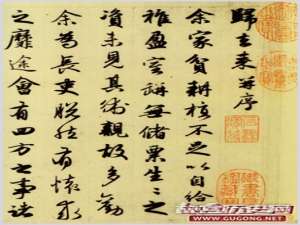 歸去来并序
余家貧耕植不足以自給
稚盈室缾無儲粟生生之
資未見其術親故多勸
余為長吏脱然有懷求
之靡途會有四方之事諸
故宫历史网
WWW.GUGONG.NET